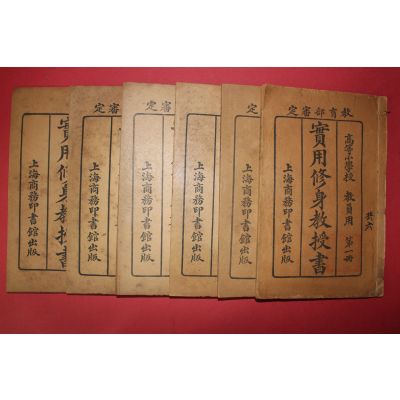 教育部審定
高等小學校 教員用 第一冊
實用修身教授書
上海商務印書館出版
共六
定
上海商務印書館出版
審定
上海商務印書館出版
審定
上海商務印書館出版
審定
上海商務印書館出版
實用修身教授書
上海商務印書館出版